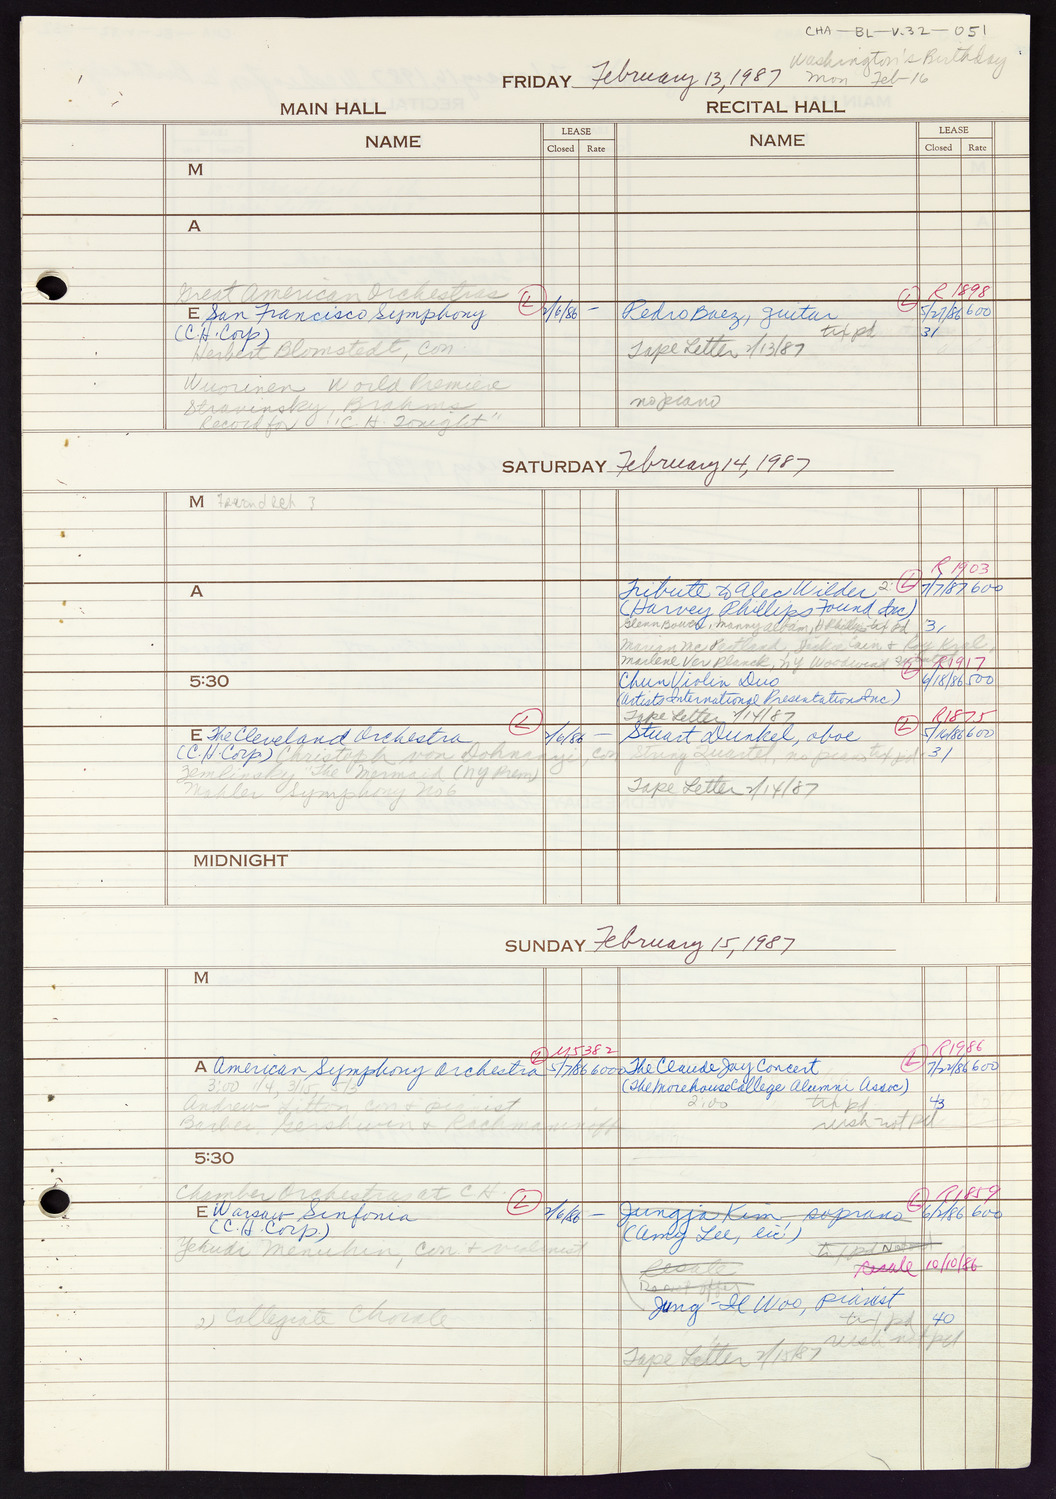 CHA-BL-V.32-051
Washington's Birthday
Mon Feb-16
FRIDAY February 13, 1987
MAIN HALL RECITAL HALL
NAME LEASE Closed Rate NAME LEASE Closed Rate
M
A
Great American Orchestras
E San Francisco Symphony (L) 2/6/86 —
(C.H. Corp)
Herbert Blomstedt, con
Wuorinen World Premiere
Stravinsky, Brahms
Record for "C.H. Tonight"
R1898
Pedro Baez, guitar (L) 5/27/86 600
tix pd 31
Tape Letter 2/13/87
no piano
SATURDAY February 14, 1987
M
A
R1903
Tribute to Alec Wilder 2: (L) 7/7/87 600
(Harvey Phillips Found Inc)
Glenn Bowes, Manny Albam, H Phillips tix pd 31
Marian McPartland, Jackie Cain & Roy Kral,
Marlene VerPlanck, NY Woodwind
5:30
R1917
Chun Violin Duo (L) 6/18/86 500
(Artists International Presentations Inc)
Tape Letter 2/14/87
E The Cleveland Orchestra (L) 2/6/86 —
(C.H. Corp) Christoph von Dohnanyi, con
Zemlinsky "The Mermaid (NY Prem)
Mahler Symphony No 6
R1875
Stuart Dunkel, oboe (L) 5/16/86 600
String Quartet, no piano tix pd 31
Tape Letter 2/14/87
MIDNIGHT
SUNDAY February 15, 1987
M
M5382
A American Symphony Orchestra (L) 5/7/86 6000
3:00 1/4, 3/15, 5/3
Andrew Litton con & pianist
Barber, Gershwin & Rachmaninoff
R1986
The Claude Jay Concert (L) 7/22/86 600
(The Morehouse College Alumni Assoc)
2:00 tix pd 43
ush not pd
5:30
Chamber Orchestras at C.H.
E Warsaw Sinfonia (L) 2/6/86 —
(C.H. Corp)
Yehudi Menuhin, con. & violinist
2) Collegiate Chorale
R1859
Jungja Kim, soprano (L) 6/2/86 600
(Amy Lee, lic)
Resale
resale 10/10/86
Jung-Il Woo, pianist
tix pd 40
ush not pd
Tape Letter 2/15/87